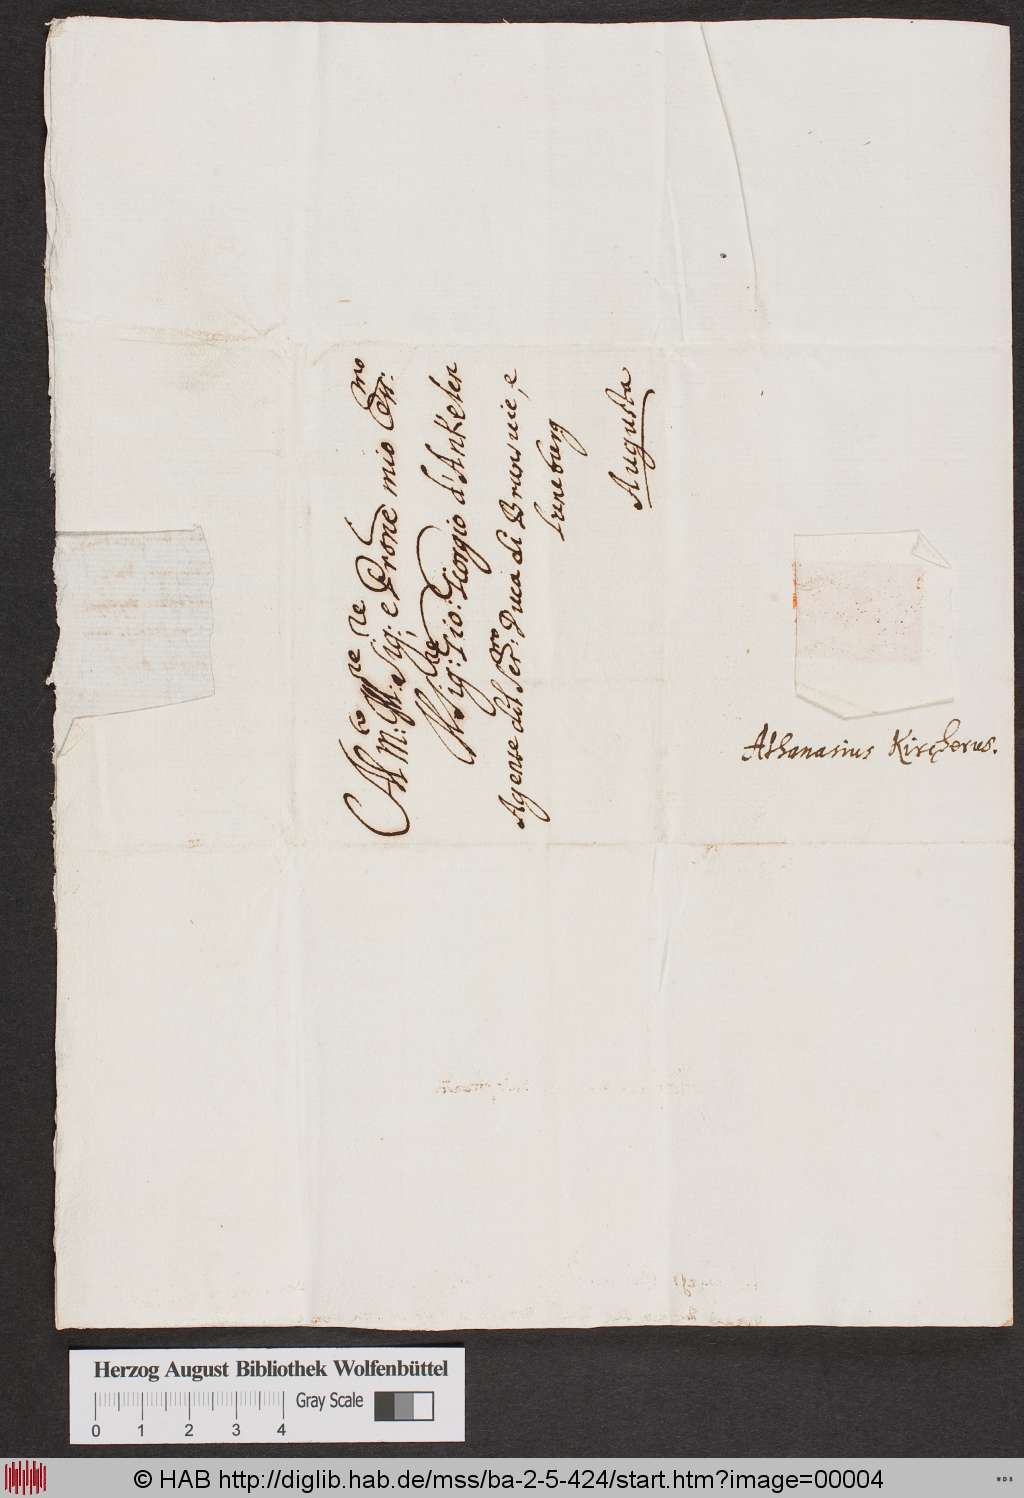 Al M:to Ill:re Sig:re e Prone mio Coll:mo
Il Sig: Gio: Giorgio d'Ankelen
Agente del Ser:mo Duca di Brunsuic, e
Luneburg
Augusta
Athanasius Kircherus.
Herzog August Bibliothek Wolfenbüttel
0 1 2 3 4
Gray Scale
© HAB http://diglib.hab.de/mss/ba-2-5-424/start.htm?image=00004